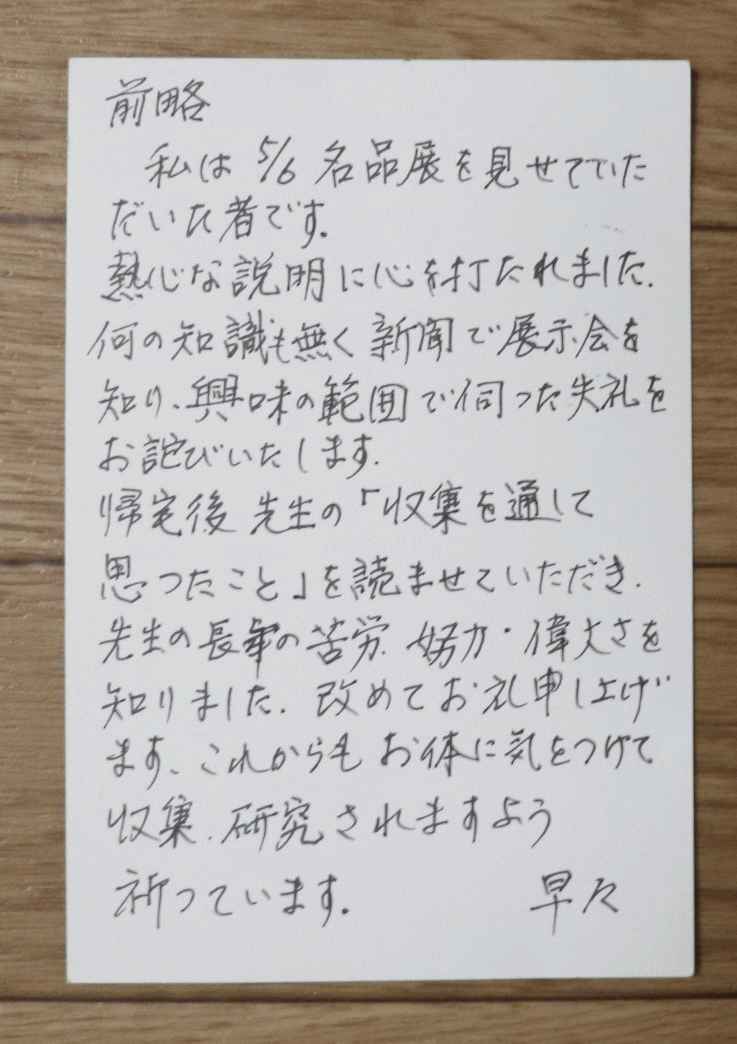 前略
私は 5/6 名品展を見せてていた
だいた者です。
熱心な説明に心を打たれました.
何の知識も無く 新聞で展示会を
知り、興味の範囲で伺った失礼を
お詫びいたします.
帰宅後 先生の「収集を通して
思ったこと」を読ませていただき.
先生の長年の苦労 努力・偉大さを
知りました. 改めてお礼申し上げ
ます、これからも お体に気をつけて
収集、研究されますよう
祈っています. 早々